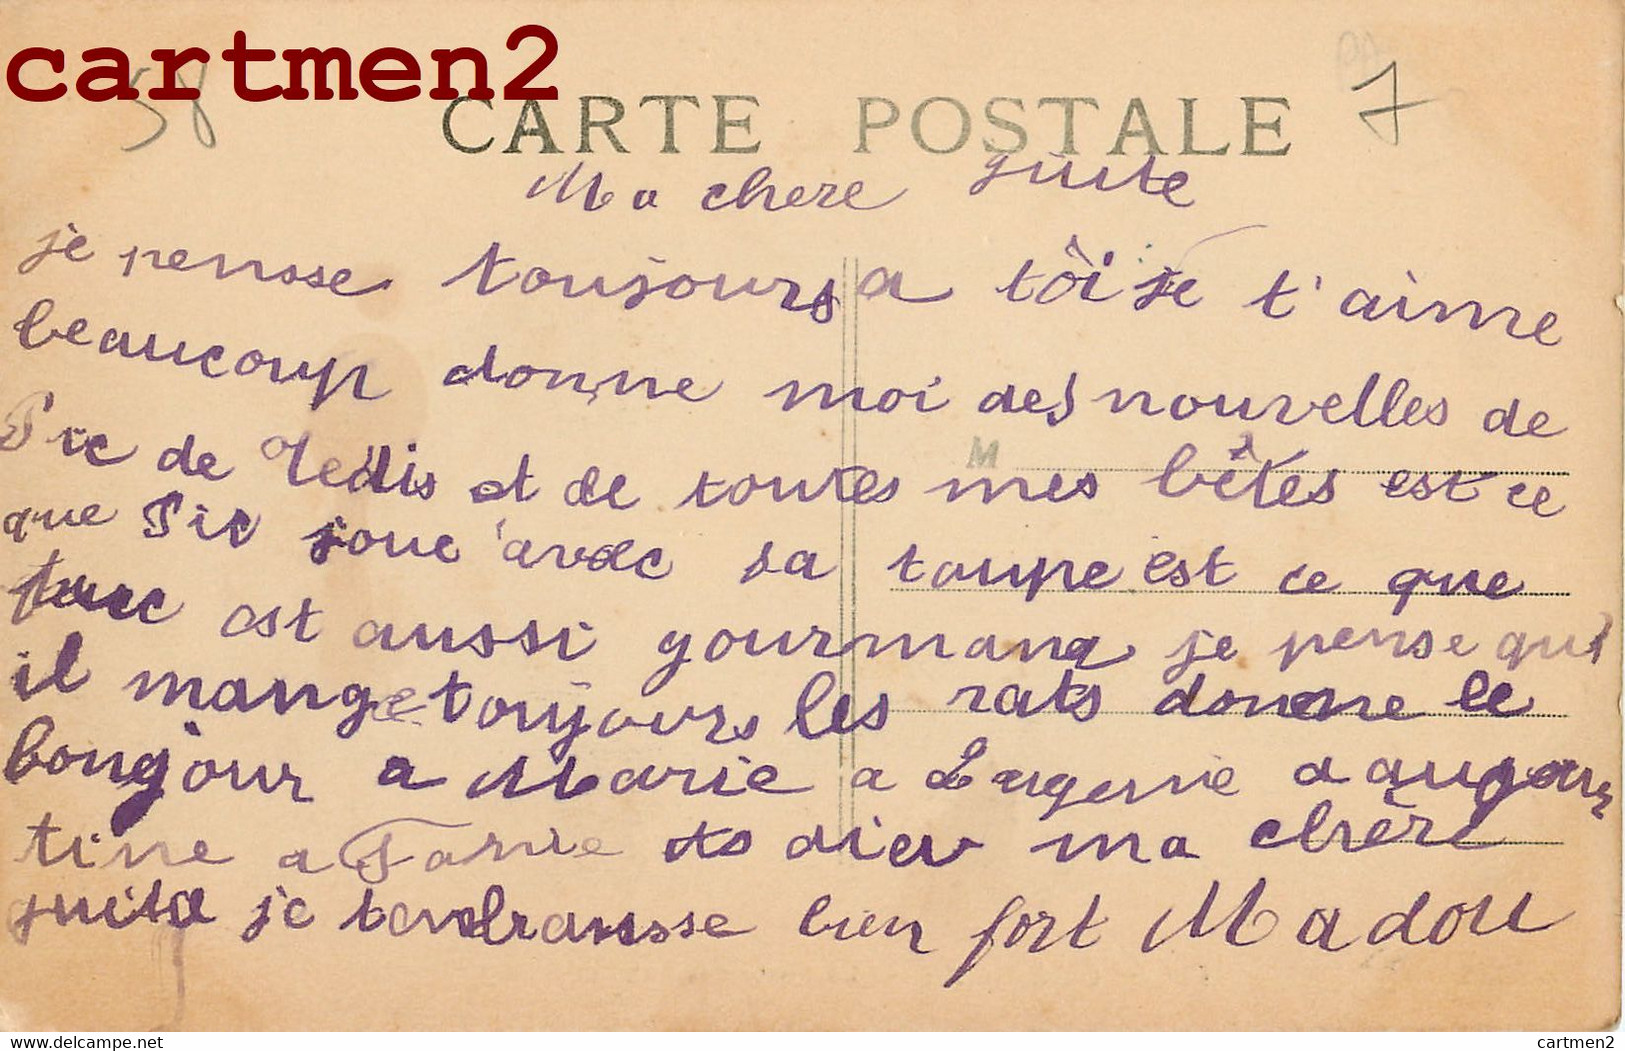 cartmen2
58
7
CARTE POSTALE
Ma chere guite
je pensse toujours a toi je t'aime
beaucoup donne moi des nouvelles de
Pic de et de toutes mes bêtes est ce
que Pic joue avec sa taupe est ce que
est aussi gourmand je pense qui
il mange toujours les rats donne le
bongjour a Marie a Eugenie a augous
tine a a dieu ma chère
guite je bien fort Madou
M
Delcampe.net
cartmen2